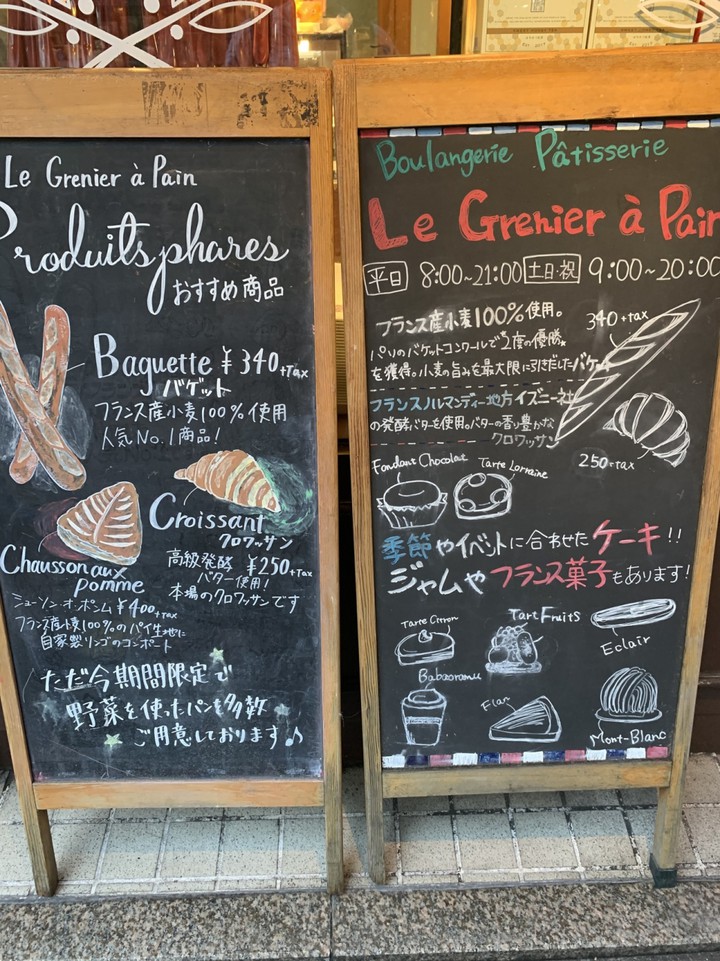 Le Grenier à Pain
Produits phares
おすすめ商品
Baguette ¥340+Tax
バゲット
フランス産小麦100%使用
人気No.1商品!
Croissant
クロワッサン
高級発酵 ¥250+Tax
バター使用!
本場のクロワッサンです
Chausson aux
pomme
ショーソン・オ・ポンム ¥400+Tax
フランス産小麦100%のパイ生地に
自家製リンゴのコンポート
ただ今期間限定で
野菜を使ったパンを多数
ご用意しております♪
Boulangerie Pâtisserie
Le Grenier à Pain
平日 8:00~21:00 土日・祝 9:00~20:00
フランス産小麦100%使用。
340+tax
パリのバゲットコンクールで2度の優勝
を獲得。小麦の旨みを最大限に引きだしたバゲ
フランスノルマンディー地方イズニー社
の発酵バターを使用。バターの香り豊かな
クロワッサン
250+tax
Fondant Chocolat
Tarte Lorraine
季節やイベントに合わせたケーキ!!
ジャムやフランス菓子もあります!
Tarte Citron
Tart Fruits
Eclair
Babaoramu
Flan
Mont-Blanc